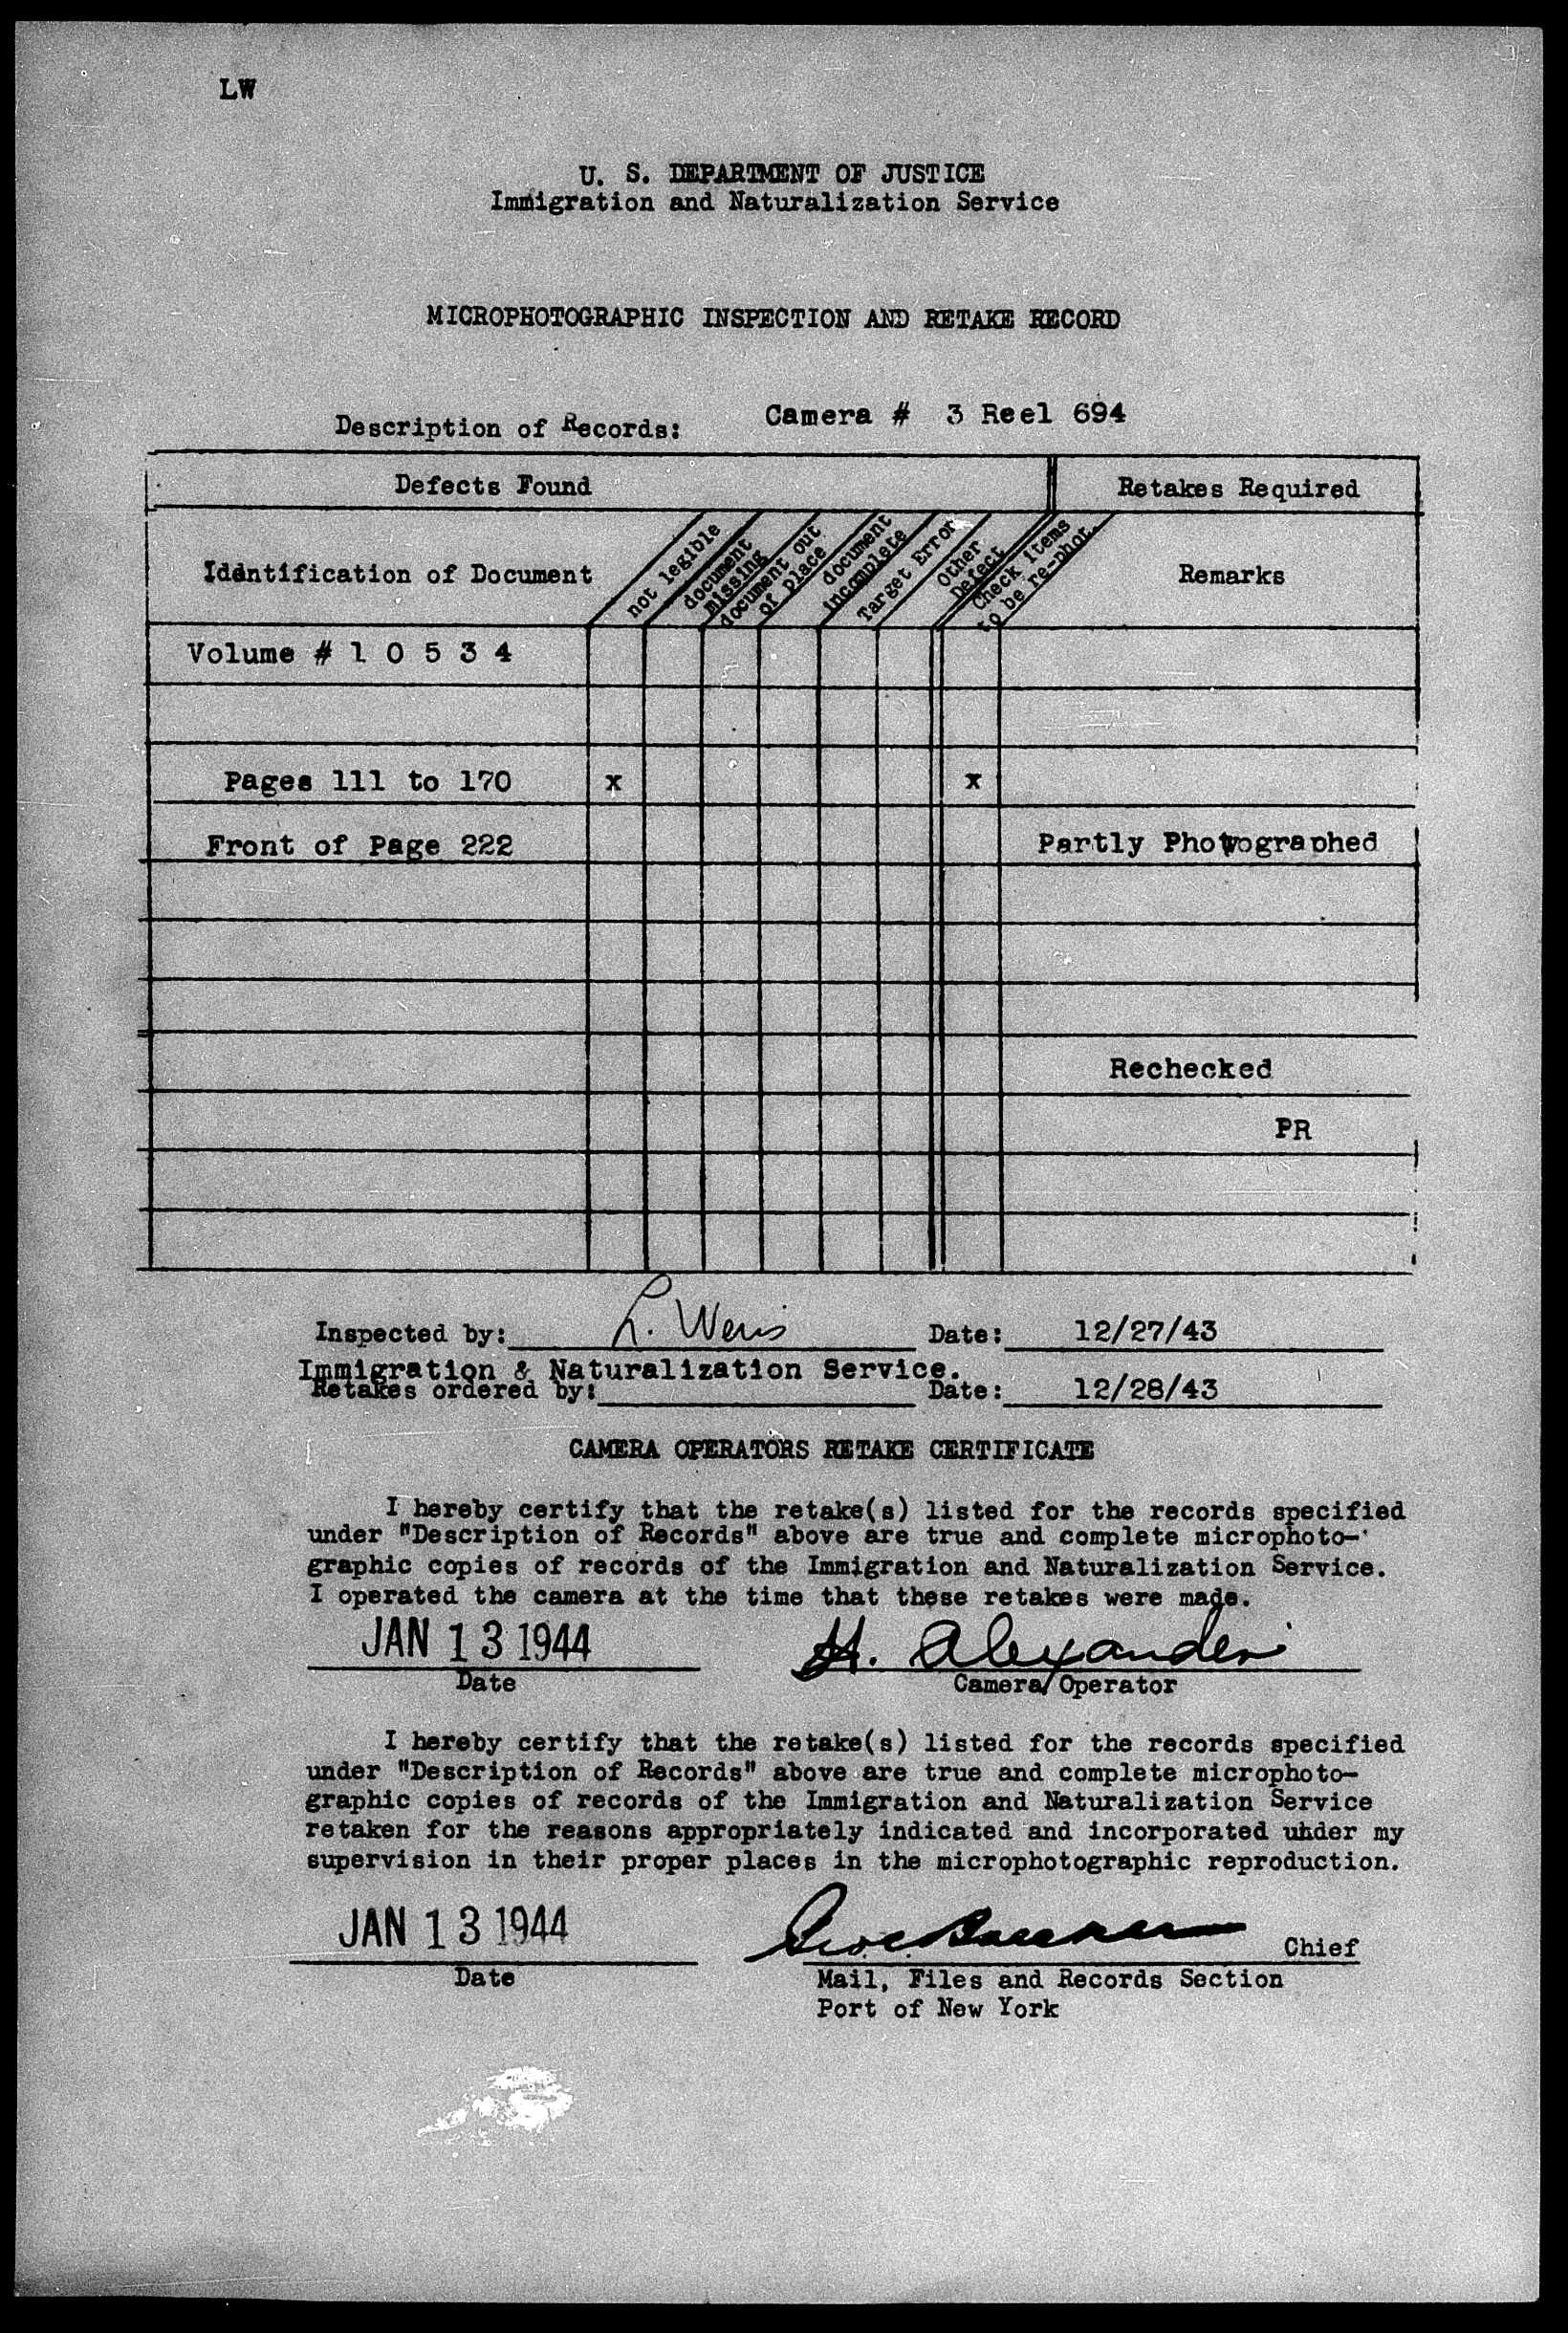 LW
U. S. DEPARTMENT OF JUSTICE
Immigration and Naturalization Service
MICROPHOTOGRAPHIC INSPECTION AND RETAKE RECORD
Description of Records: Camera # 3 Reel 694
Defects Found Retakes Required
Identification of Document
not legible
document missing
document out of place
document incomplete
Target Error
Other Defect
Check items to be re-phot.
Remarks
Volume # 1 0 5 3 4
Pages 111 to 170 x x
Front of Page 222 Partly Photographed
Rechecked
PR
Inspected by: L. Date: 12/27/43
Immigration & Naturalization Service.
Retakes ordered by: Date: 12/28/43
CAMERA OPERATORS RETAKE CERTIFICATE
I hereby certify that the retake(s) listed for the records specified
under "Description of Records" above are true and complete microphoto-
graphic copies of records of the Immigration and Naturalization Service.
I operated the camera at the time that these retakes were made.
JAN 13 1944 H. Alexander
Date Camera Operator
I hereby certify that the retake(s) listed for the records specified
under "Description of Records" above are true and complete microphoto-
graphic copies of records of the Immigration and Naturalization Service
retaken for the reasons appropriately indicated and incorporated under my
supervision in their proper places in the microphotographic reproduction.
JAN 13 1944 Chief
Date Mail, Files and Records Section
Port of New York